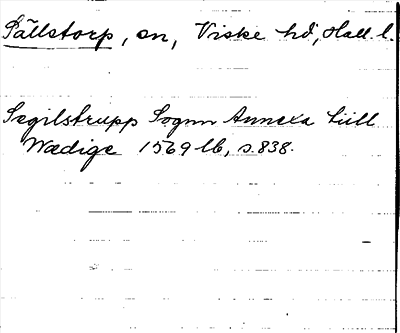 Sällstorp, sn, Viske hd, Hall. l.
Sægilstrupp Sognn Annexa till
Wædige 1569 lb, s. 838.